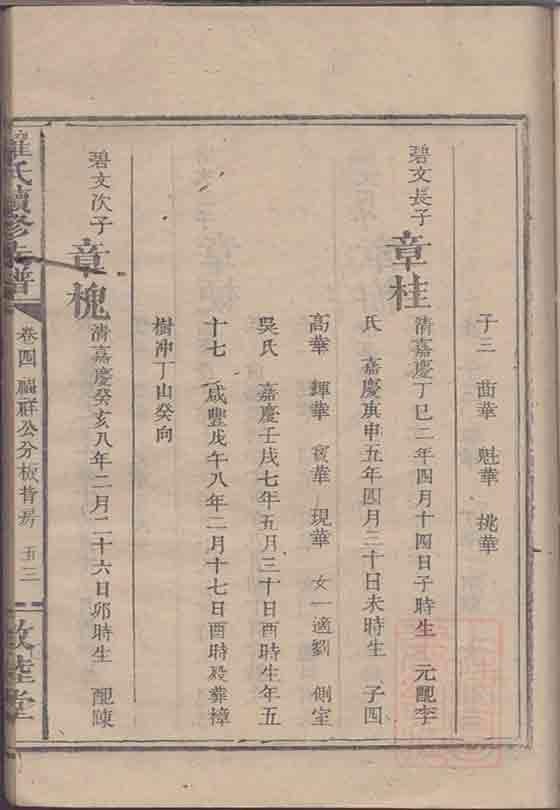 子三 茁華 魁華 挑華
碧文長子 章桂 清嘉慶丁巳二年四月十四日子時生 元配李
氏 嘉慶庚申五年四月二十日未時生 子四
高華 輝華 華 現華 女一適劉 側室
吳氏 嘉慶壬戌七年五月三十日酉時生年五
十七 咸豐戊午八年二月十七日酉時歿葬樟
樹沖丁山癸向
碧文次子 章槐 清嘉慶癸亥八年二月二十六日卯時生 配陳
羅氏續修族譜 卷四 福祥公分板背房 五三 敦睦堂